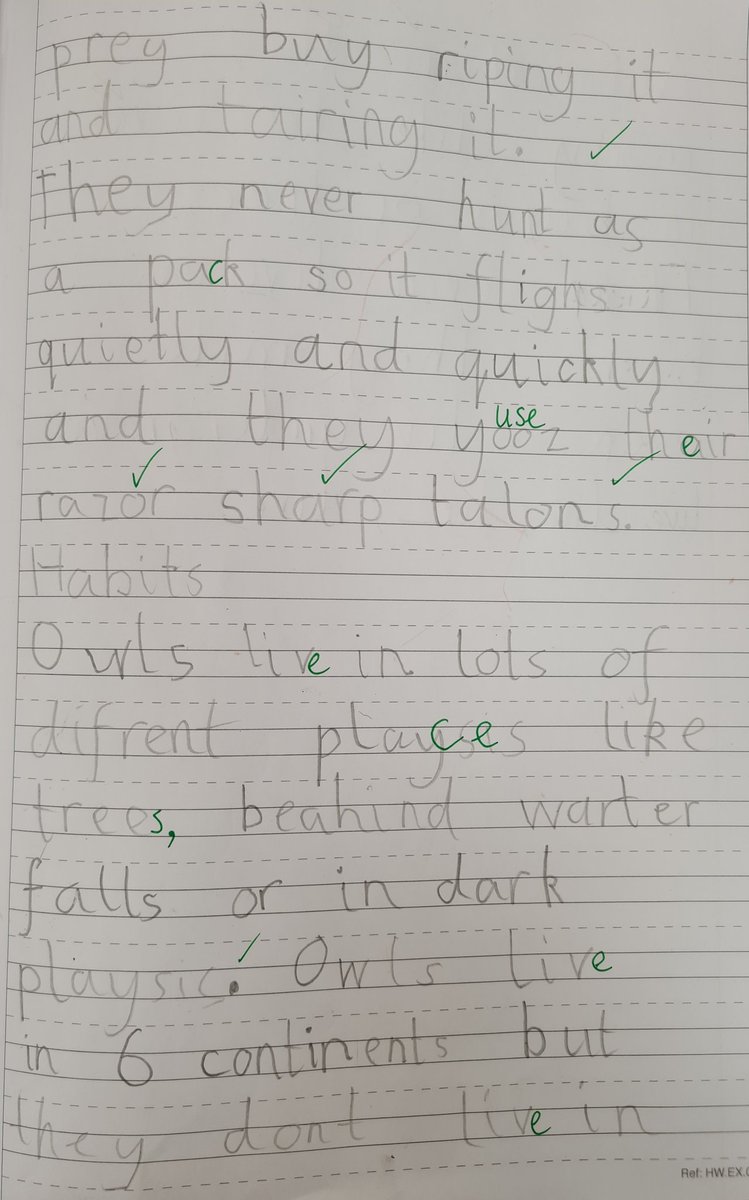 prey buy riping it
and tairing it. ✓
They never hunt as
a pack so it flighs
quietly and quickly
use
and they yooz their
✓ ✓ ✓
razor sharp talons.
Habits
Owls live in lots of
difrent playces like
trees, beahind warter
falls or in dark
playsic. Owls live
in 6 continents but
they dont live in
Ref: HW.EX.